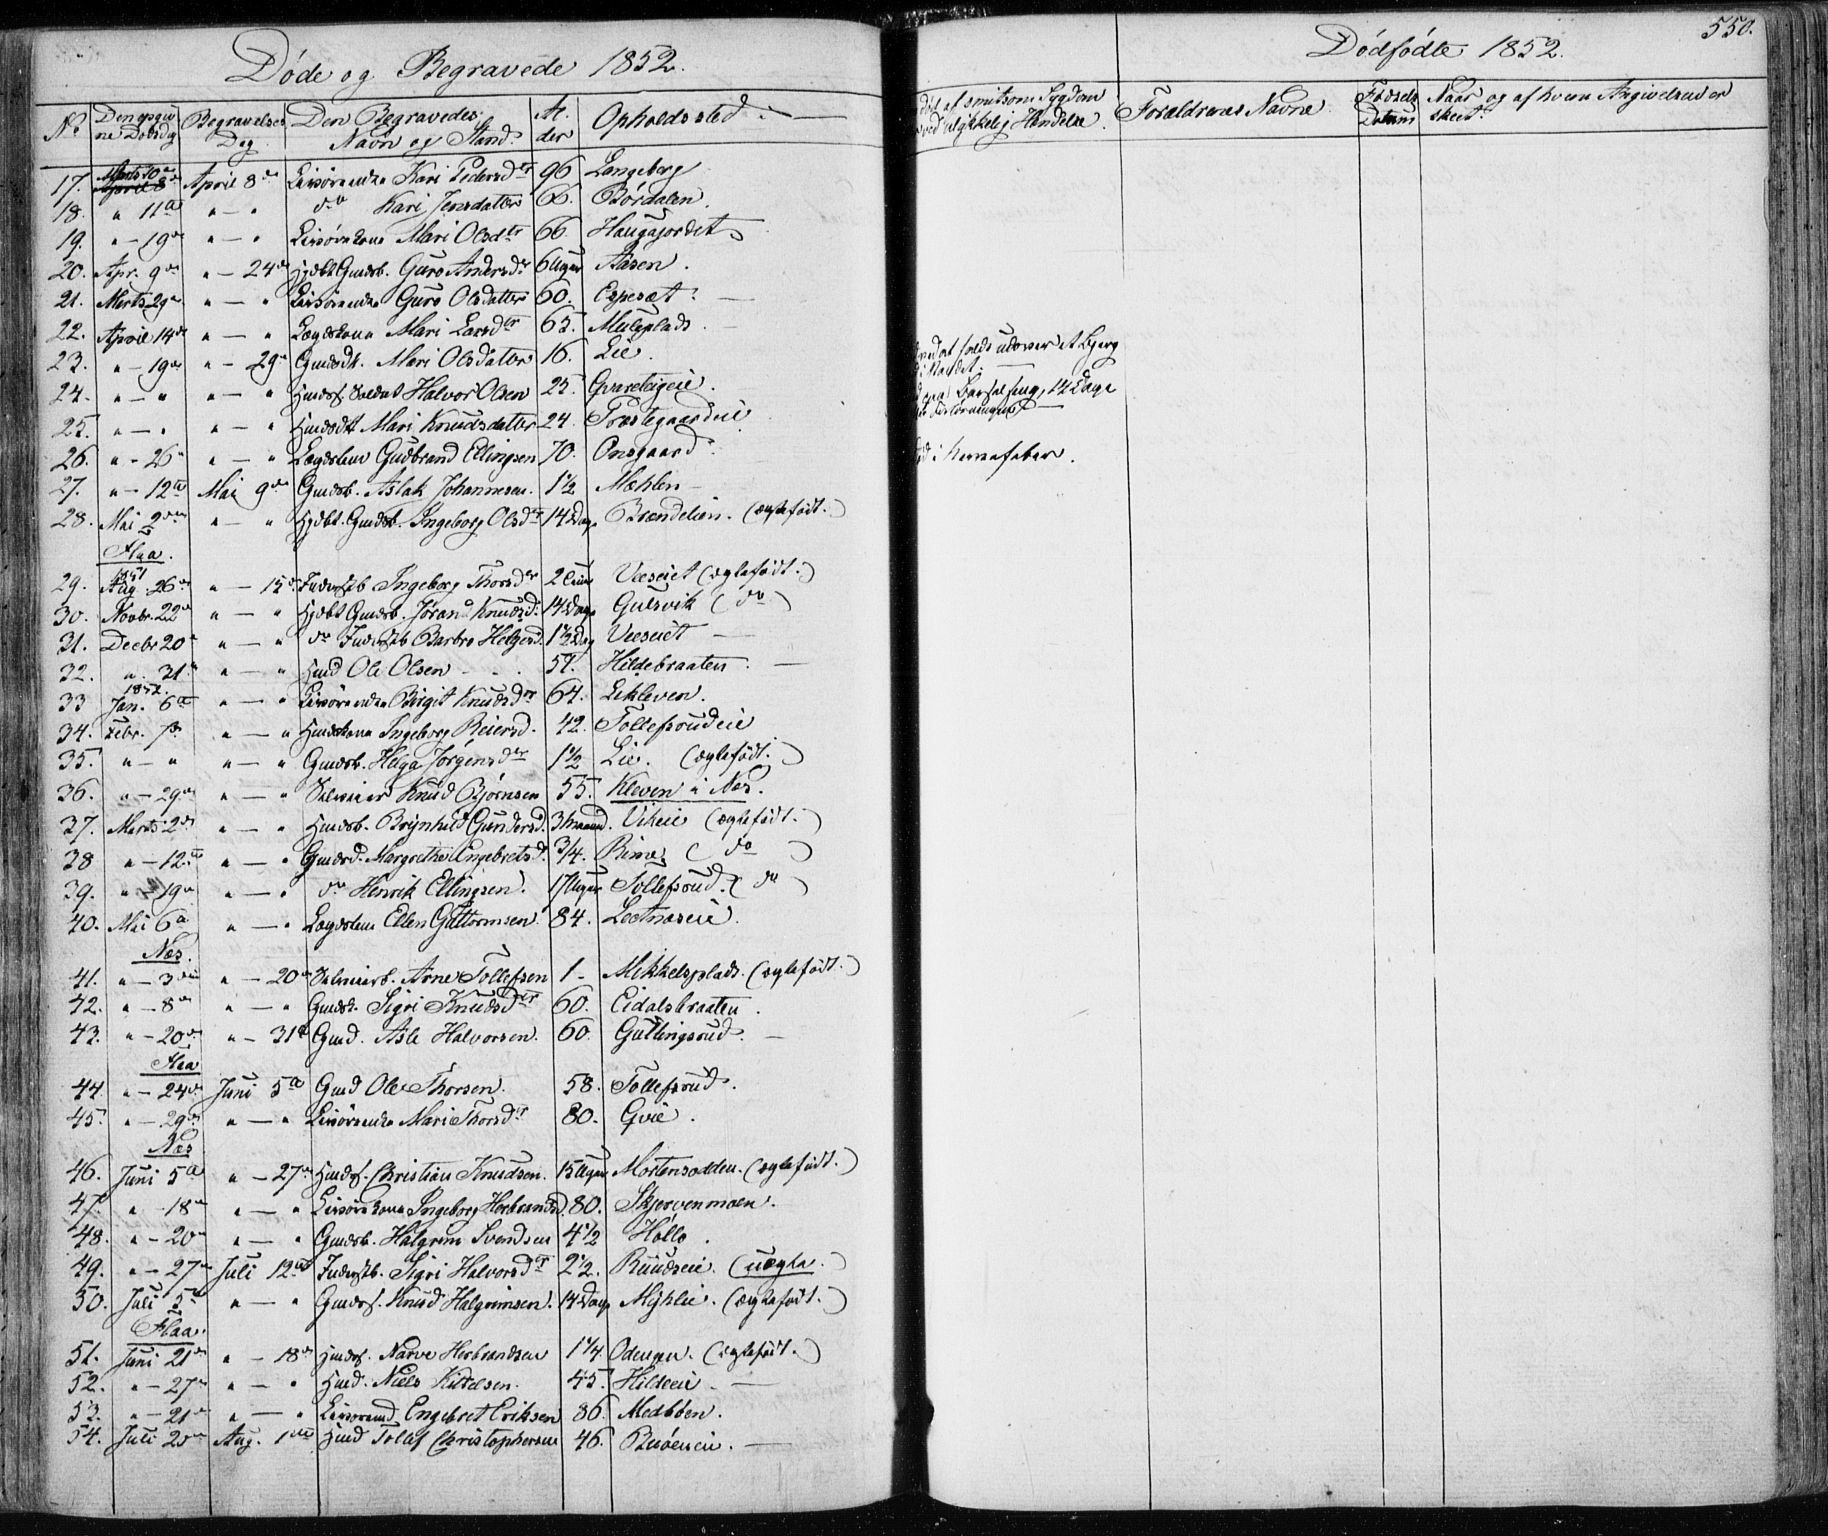 Døde og Begravede 1852.
No Den opgivne Dødsdag Begravelses Dag. Den Begravedes Navn og Stand. Alder Opholdssted.
17. Marts 30te April 8de April 8de Kari Pedersdtr 96 Langeberg
18. " 11te " — " do Kari Jensdatter 66. Børdalen.
19. " — 19de " — " Mari Olsdtr 66 Haugajordet
20. Apr. 9de " — 24de Hjdbt Gmdsb. Guro Andersdr 6 Uger Aasen.
21. Marts 29de " — " Guro Olsdatter 60. Espeset.
22. April 14de " — " Lægdskone Mari Larsdtr 65. Muleplads.
23. " — 19de " — 29de Gmdsdt. Mari Olsdatter 16. Lie.
24. " — " " — " Hmdss. Soldat Halvor Olsen 25. Gvaleieie.
25. " — " " — " Hmdsdtt Mari Knudsdatter 24. Præstegaardeie
26. " — 26de " — " Lægdslem Gudbrand Ellingsen 70. Onsgaard
27. " — 12te Mai 9de Gmdsb. Aslak Johannesen. 1½ Mæhlen
28. Mai 2den " — " Hjdbt. Gmdsb. Ingeborg Olsdtr 14 Dage Brændelien. (ægtefødt.)
Flaa.
29. 1851 Aug. 26de " — 15de Inderstb Ingeborg Thorsdr Veseiet (ægtefødt.)
30. Novbr. 22de " — " Hjdbt Gmdsb. Jøran Knudsd. 14 Dage Gulsvik (do)
31. Decbr 20de " — " do Inderstb Barbro Helgesd. 1½ Dag Veeseiet
32. " 31te " — " Hmd Ole Olsen 57. Hildebraaten.
33 1852. Jan. 6te " — " Birgit Knudsdtr 64. Ekleven.
34. Febr. 7de " — " Hmdskone Ingeborg Reiersd. 42. Tollefsrudeie
35. " — " " — " Gmdsb. Helga Jørgensdtr 1½ Lie. (ægtefødt.)
36. " — 29de " — " Selveier Knud Bjørnsen 55. Kleven i Næs.
37. Marts 2den " — " Hmdsb. Brynhild Gundersd. 3 Maaned. Vikeie (ægtefødt.)
38 " — 12te " — " Gmdsd. Margrethe Engebretsd. 3/4. Rime. (do)
39. " — 19de " — " do Henrik Ellingsen. 17 Uger Tollefsrud. (do)
40. Mai 6te " — " Lægdslem Ellen Guttormsen. 84. Leetnæseie.
Næs.
41. " — 3die " — 20de Selveierb. Arne Tollefsen 1 - Mikkelsplads. (ægtefødt.)
42. " — 8de " — " Sigri Knudsdtr 60. Eidalsbraaten.
43. " — 20de " — 31te Gmd. Asle Halvorsen. 60. Gullingsrud.
Flaa
44. " — 24de Juni 5te Gmd Ole Thorsen. 58. Tollefsrud.
45. " — 29de " — " Mari Thorsdtr 80. Gvie.
Næs
46. Juni 5te " — 27de Hmdss. Christian Knudsen. 15 Uger Mortensodden. (ægtefødt.)
47. " 18de " — " Ingeborg Herbrandsd 80. Skjervenmoen.
48. " — 20de " — " Gmdsb. Halgrim Svendsen 4½ Hollo.
49. " — 27de Juli 12te Inderstb. Sigri Halvorsdtr 2½. Ruudseie. (uægte.)
50. Juli 5te " — " Gmdss. Knud Halgrimsen. 14 Dage Myhlie. (ægtefødt.)
Flaa.
51. Juni 21de " — 18de Hmdss. Narve Herbrandsen 1¼. Odeneen. (ægtefødt.)
52. " — 27de " — " Hmd. Niels Kittelsen. 45. Hildeeie.
53. " — 21de " — " Engebret Eriksen 86. Medbøen.
54. Juli 25de Aug. 1ste Hmd Tolef Christophersen 46. Busøeneie.
550.
Dødfødte 1852.
død af smitsom Sygdom ved ulykkelig Hændelse. Forældrenes Navne. Fødsels Datum Naar og af hvem Angivelsen er skeet.
ved at falde udover et Bjerg
paa Barselseng, 14 Dage
i Nervefeber.